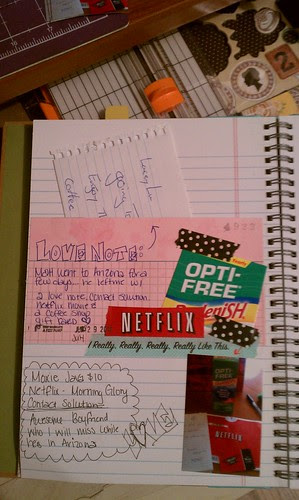 2
Lovey Lu
going to
Enjoy
Coffee
#933
LOVE NOTE:
Matt went to Arizona for a
few days... he left me w/
a love note, contact solution,
Netflix movie &
a Coffee Shop
gift card
OPTI-
FREE
RepleniSH
NETFLIX
I Really, Really, Really, Really Like This.
Moxie Java $10
Netflix - Morning Glory
Contact Solution
Awesome Boyfriend
who I will miss while
he's in Arizona
NETFLIX